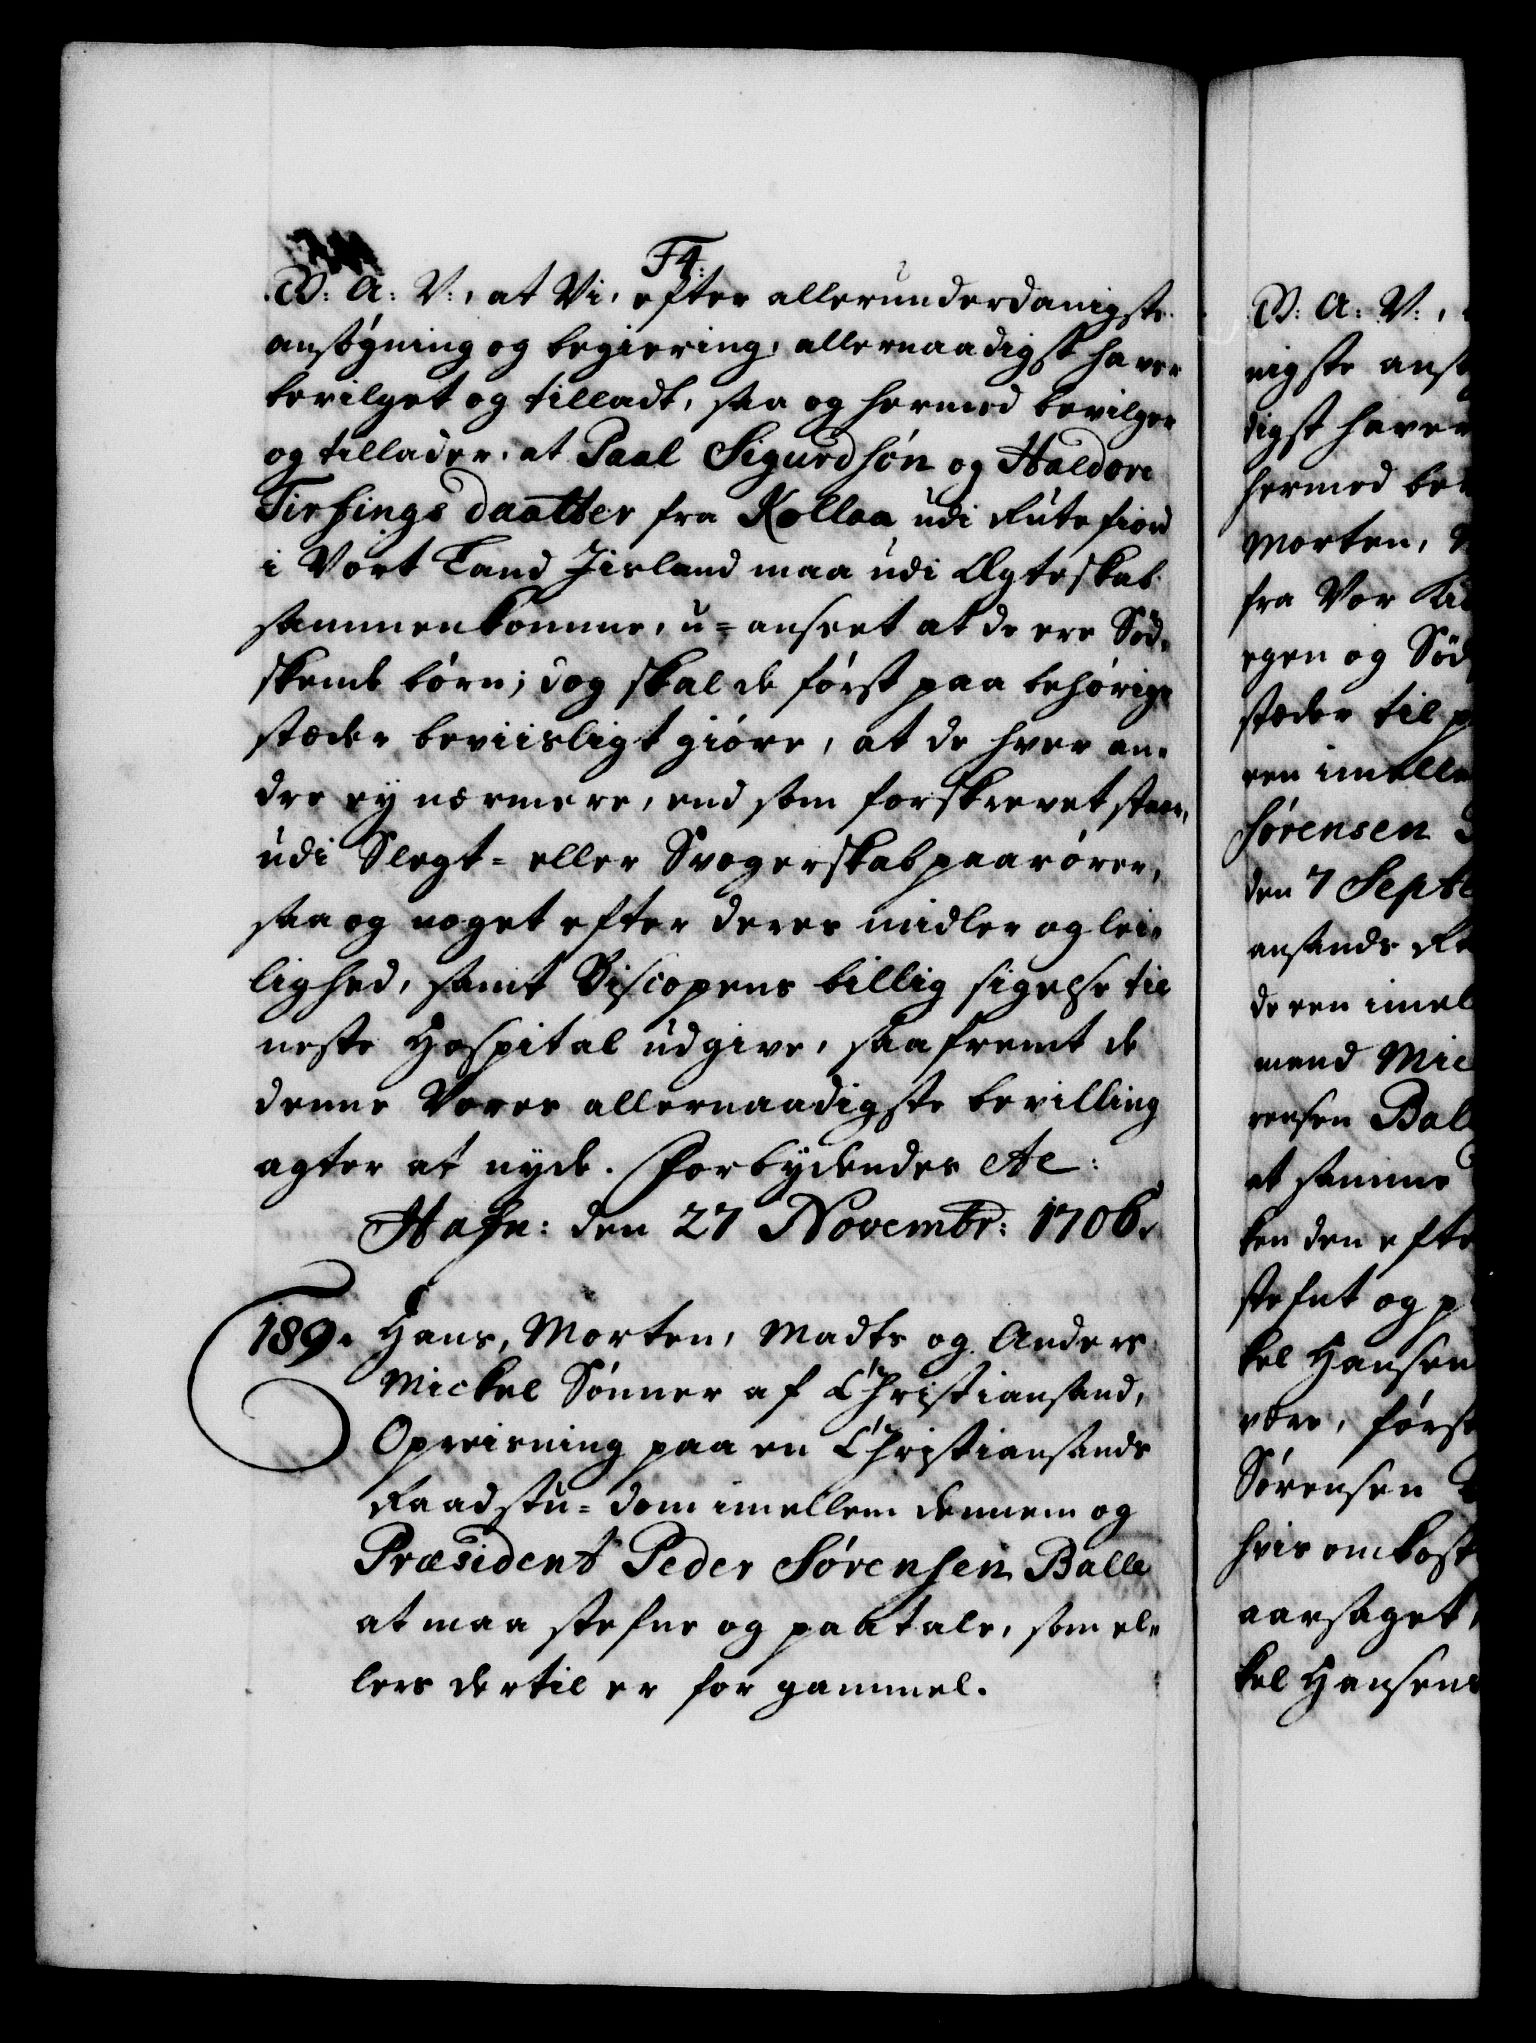 F4:
G: A: V:, at Vi, efter allerunderdanigste
ansøgning og begiering, allernaadigst haver
bevilget og tilladt, saa og hermed bevilger
og tillader, at Paal Sigurdsøn og Haldore
Tirfings daatter fra Kollaa udi Rutefiord
i Vort Land Jisland maa udi Ægteskab
sammenkomme, u-anseet at de ere Sød,,
skende børn; dog skal de først paa behørige
stæder beviisligt giøre, at de hver an,,
dre ey nærmere, end som forskrevet staar,
udi Slegt- eller Svogerskab paarører,
saa og noget efter deres midler og lei,,
lighed, samt Biscopens billig sigelse til
neste Hospital udgive, saafremt de
denne Vores allernaadigste bevilling
agter at nyde. Forbydendes etc:
Hafn: den 27 Novembr: 1706.
189. Hans, Morten, Madts og Anders
Mickel Sønner af Christiansand,
Opreisning paa en Christiansands
Raadstu-dom imellem dennem og
Præsident Peder Sørensen Balle
at maa stefne og paatale, som el,,
lers dertil er for gammel.
G: A: V:,
nigste ansø
digst haver
hermed be
Morten,
fra Vor
egen og Sød
stæder til
ren imelle
Sørensen
den 7 Septe
ansands R
deren imel
mend Mic
rensen Bal
at samme
ken den efte
stefnt og p
kel Hansen
være, først
Sørensen
hvis omkost
aarsaget,
kel Hansens